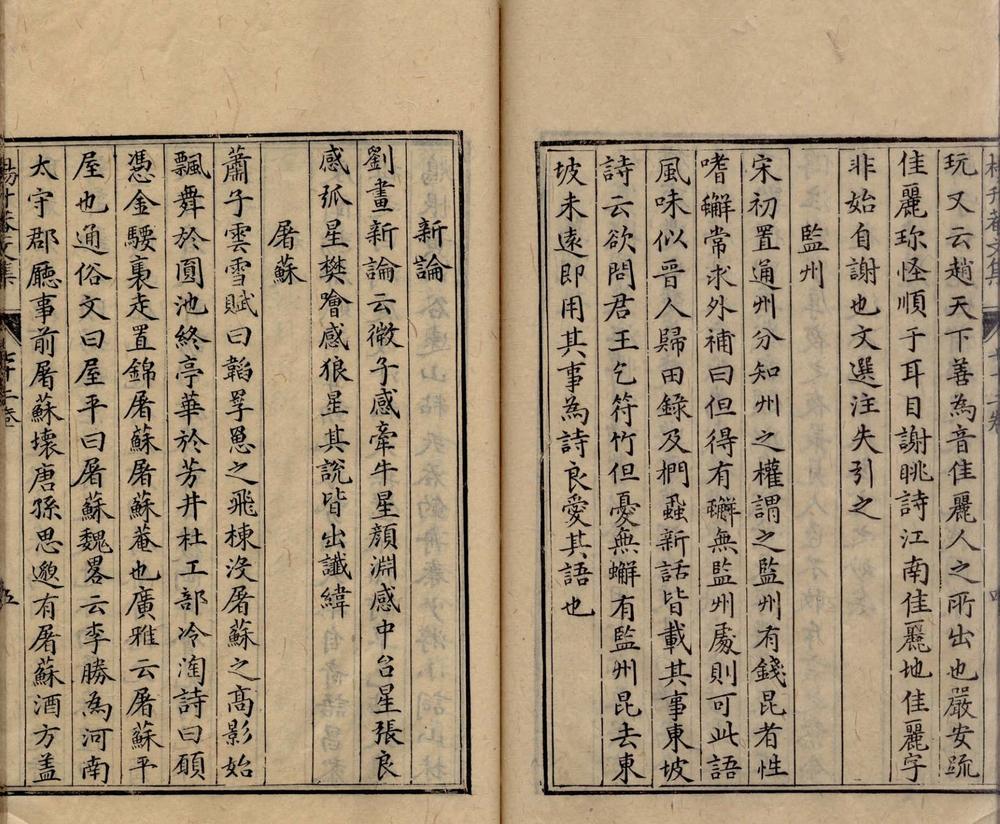 玩又云趙天下善為音佳麗人之所出也嚴安疏
佳麗珎怪順于耳目謝眺詩江南佳麗地佳麗字
非始自謝也文選注失引之
監州
宋初置通州分知州之權謂之監州有錢昆者性
嗜蠏常求外補曰但得有蠏無監州處則可此語
風味似晋人歸田錄及捫蝨新話皆載其事東坡
詩云欲問君王乞符竹但憂無蠏有監州昆去東
坡未遠即用其事為詩良愛其語也
新論
劉畫新論云微子感牽牛星顏淵感中台星張良
感弧星樊噲感狼星其說皆出讖緯
屠蘇
蕭子雲雪賦曰韜罦罳之飛棟沒屠蘇之高影始
飄舞於圓池終亭華於芳井杜工部冷淘詩曰願
憑金騕裹走置錦屠蘇屠蘇菴也廣雅云屠蘇平
屋也通俗文曰屋平曰屠蘇魏畧云李勝為河南
太守郡廳事前屠蘇壞唐孫思邈有屠蘇酒方盖
五